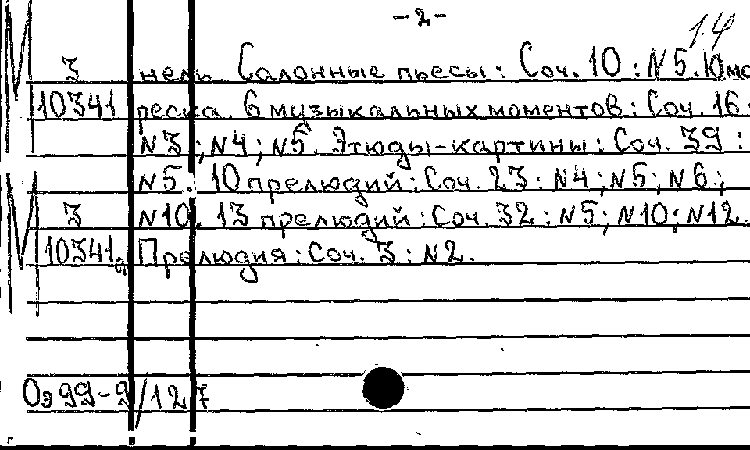 -2-
14
3 нель. Салонные пьесы: Соч. 10: N5. Юмо
10341 реска. 6 музыкальных моментов: Соч. 16:
N3; N4; N5. Этюды-картины: Соч. 39:
N5. 10 прелюдий: Соч. 23: N4; N5; N6;
3 N10. 13 прелюдий: Соч. 32: N5; N10; N12.
10341а Прелюдия: Соч. 3: N2.
Оз 99-9/127